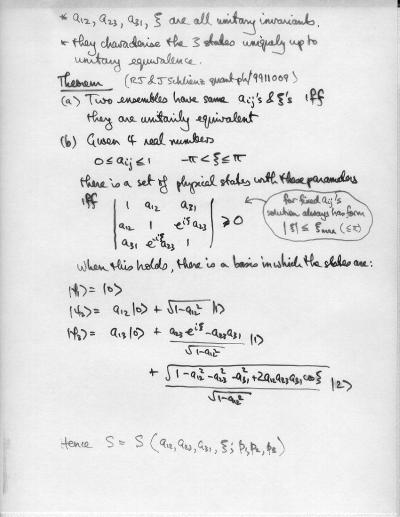 * a₁₂, a₂₃, a₃₁, ξ are all unitary invariants.
* they characterise the 3 states uniquely up to
unitary equivalence.
Theorem (RJ & J Schlienz quant-ph/9911009)
(a) Two ensembles have same aᵢⱼ's & ξ's iff
they are unitarily equivalent
(b) Given 4 real numbers
0 ≤ aᵢⱼ ≤ 1 -π < ξ ≤ π
there is a set of physical states with these parameters
iff | 1 a₁₂ a₃₁ |
| a₁₂ 1 e^{iξ} a₂₃ | ≥ 0
| a₃₁ e^{-iξ} a₂₃ 1 |
for fixed aᵢⱼ's
solution always has form
|ξ| ≤ ξmax (≤ π)
when this holds, there is a basis in which the states are:
|ψ₁⟩ = |0⟩
|ψ₂⟩ = a₁₂ |0⟩ + √(1-a₁₂²) |1⟩
|ψ₃⟩ = a₁₃ |0⟩ + (a₂₃ e^{iξ} - a₁₂ a₃₁)/√(1-a₁₂²) |1⟩
+ √(1-a₁₂²-a₂₃²-a₃₁²+2a₁₂a₂₃a₃₁ cos ξ)/√(1-a₁₂²) |2⟩
Hence S = S (a₁₂, a₂₃, a₃₁, ξ; p₁, p₂, p₃)